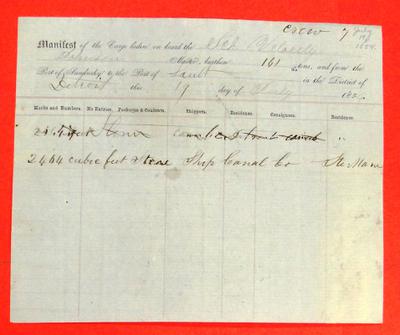 crew 7 July
19
1854.
Manifest of the Cargo laden on board the Sch Velocity
Master, burthen 161 Tons, and from the
Port of Sandusky to the Port of Sault in the District of
Detroit this 19 day of July 185
Marks and Numbers. No Entries. Packages & Contents. Shippers. Residence. Consignees. Residence.
Stone "
2464 cubic feet Stone Ship Canal Co Ste Marie